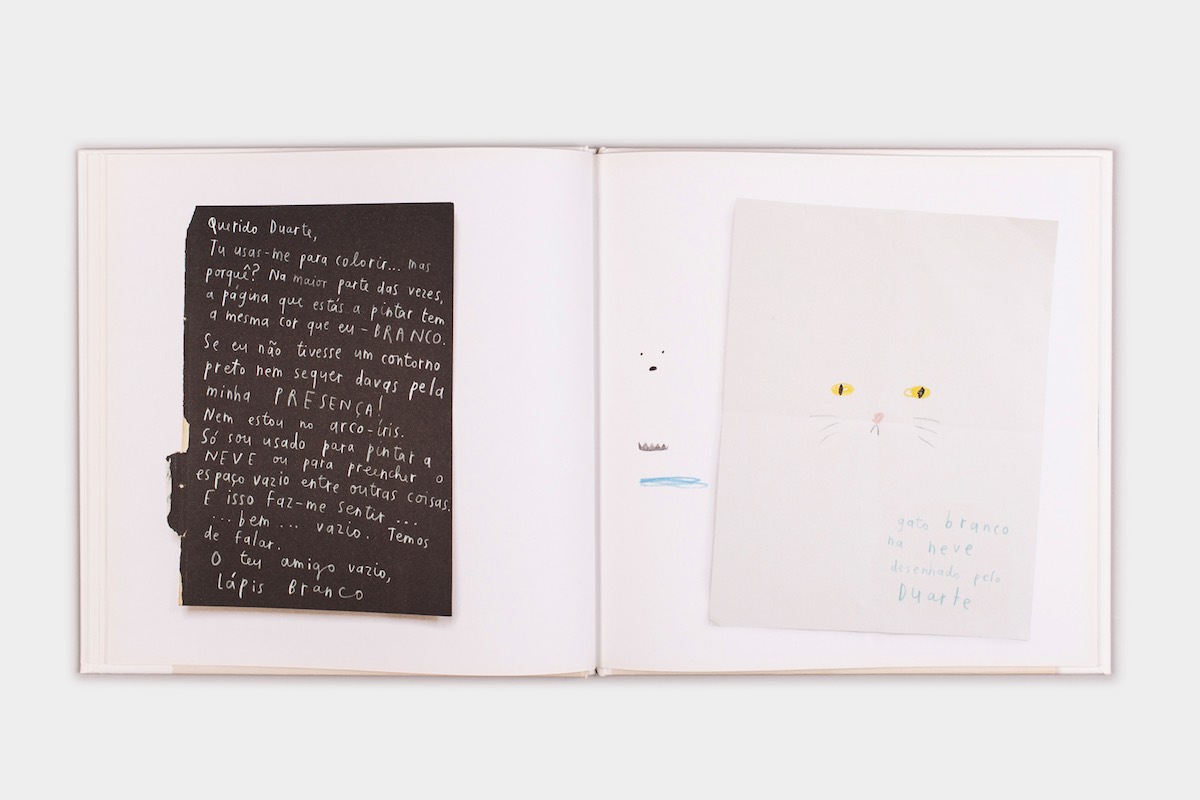 Querido Duarte,
Tu usas-me para colorir... mas
porquê? Na maior parte das vezes,
a página que estás a pintar tem
a mesma cor que eu - BRANCO.
Se eu não tivesse um contorno
preto nem sequer davas pela
minha PRESENÇA!
Nem estou no arco-íris.
Só sou usado para pintar a
NEVE ou para preencher o
espaço vazio entre outras coisas.
E isso faz-me sentir ...
... bem ... vazio. Temos
de falar.
O teu amigo vazio,
Lápis Branco
gato branco
na neve
desenhado pelo
Duarte